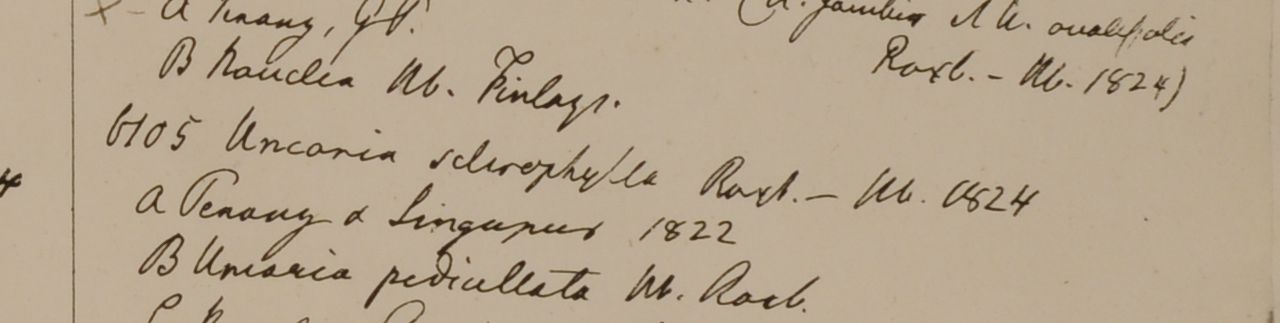 A Penang, G P. U. Gambir & U. ovalifolia
Roxb. – Hb. 1824)
B Nauclea Hb. Finlays.
6105 Uncaria sclerophylla Roxb. – Hb. 1824
A Penang & Singapur 1822
B Uncaria pedicellata Hb. Roxb.